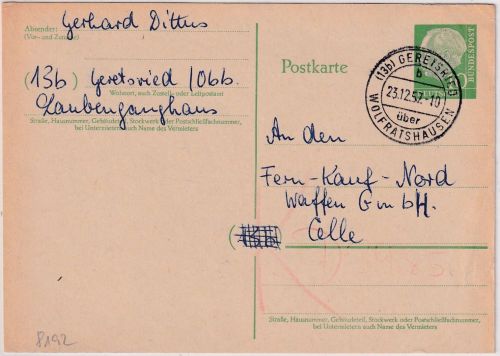 Absender:
(Vor- und Zuname)
Gerhard Dittus
(13b) Geretsried / Obb.
Wohnort, auch Zustell- oder Leitpostamt
Laubenganghaus
Straße, Hausnummer, Gebäudeteil, Stockwerk oder Postschließfachnummer,
bei Untermietern auch Name des Vermieters
Postkarte
DEUTSCHE
BUNDESPOST
(13b) GERETSRIED
b
23.12.57.-10
über
WOLFRATSHAUSEN
An den
Fern-Kauf-Nord
Waffen GmbH.
Celle
Straße, Hausnummer, Gebäudeteil, Stockwerk oder Postschließfachnummer,
bei Untermietern auch Name des Vermieters
8192